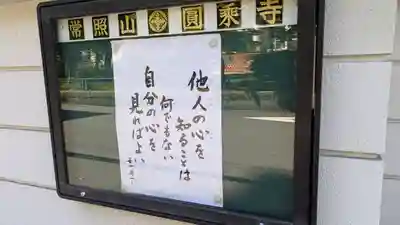 常照山 圓乗寺
他人の心を
知ることは
何でもない
自分の心を
見ればよい